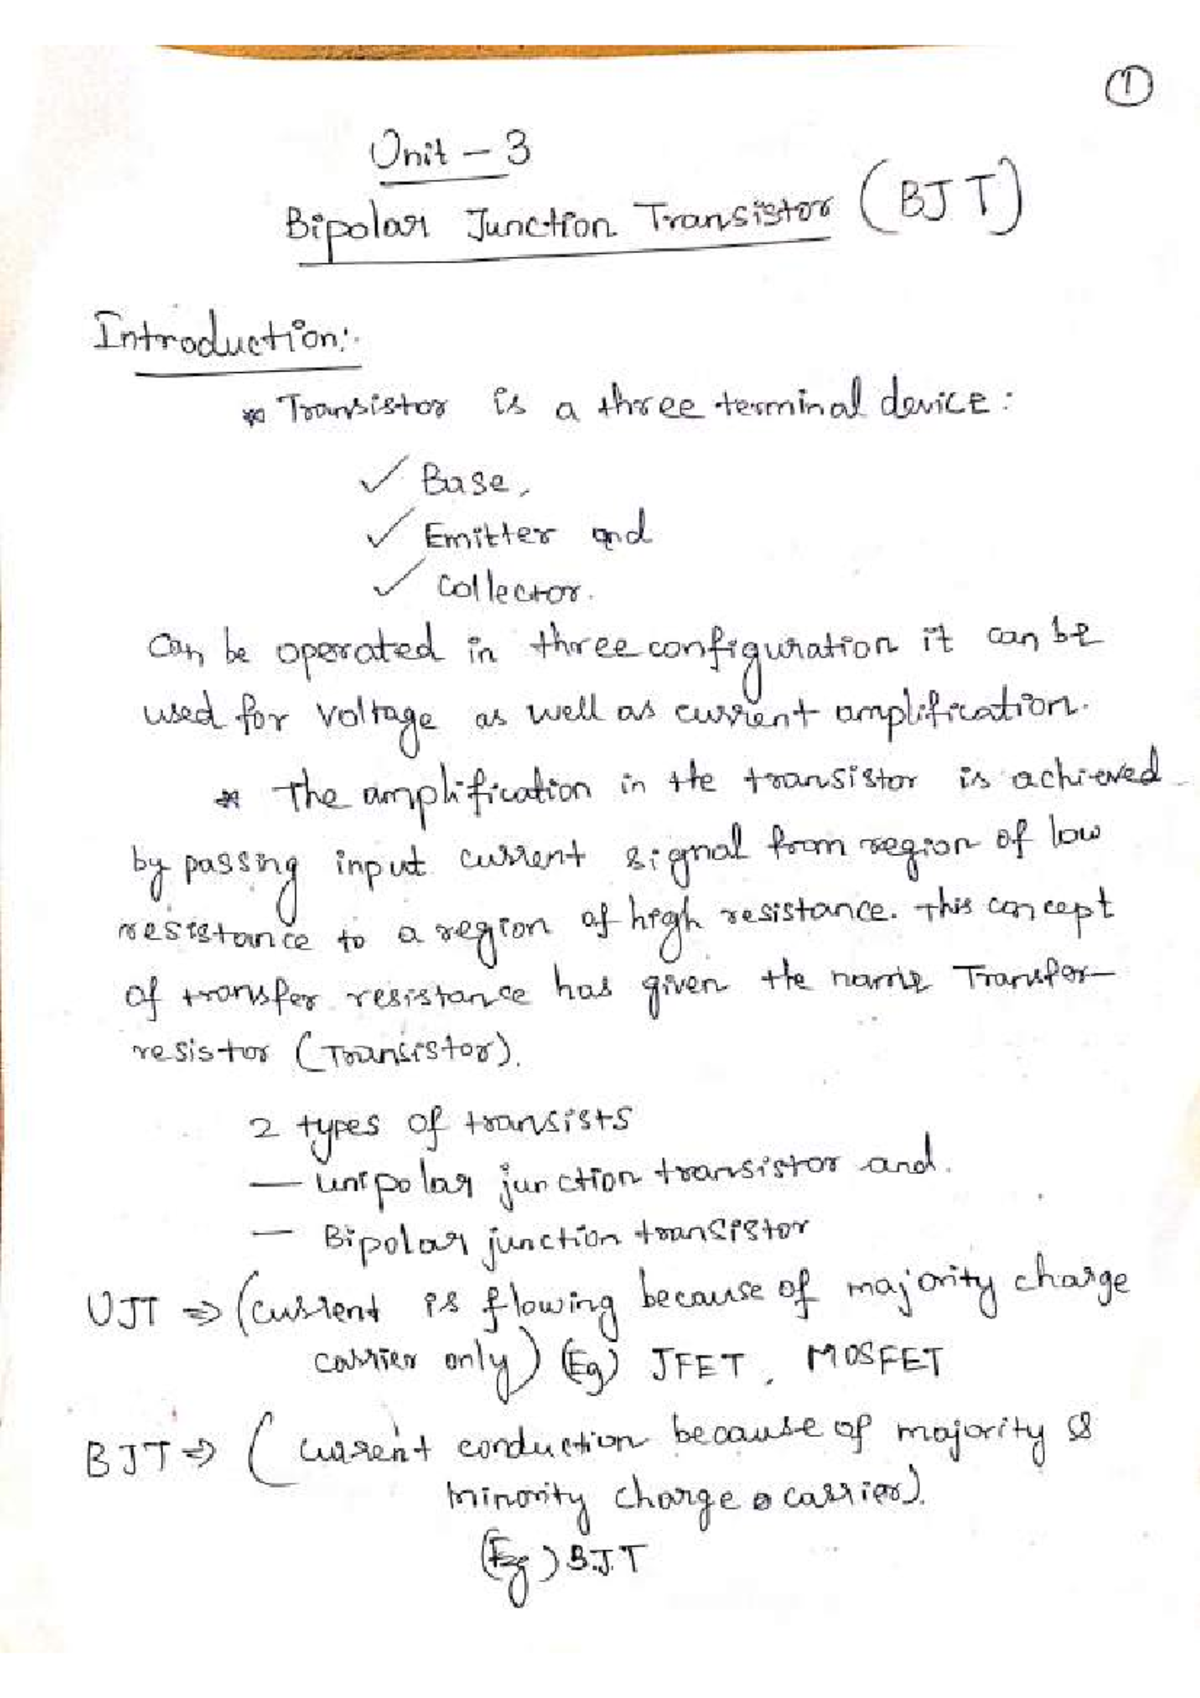 1
Unit - 3
Bipolar Junction Transistor (BJT)
Introduction:-
* Transistor is a three terminal device:
✓ Base,
✓ Emitter and
✓ Collector.
Can be operated in three configuration it can be
used for voltage as well as current amplification.
* The amplification in the transistor is achieved
by passing input current signal from region of low
resistance to a region of high resistance. This concept
of transfer resistance has given the name Transfer-
resistor (Transistor).
2 types of transists
- unipolar junction transistor and.
- Bipolar junction transistor
UJT ⇒ (current is flowing because of majority charge
carrier only) (Eg) JFET, MOSFET
BJT ⇒ (current conduction because of majority &
minority charge carrier).
(Eg) BJT